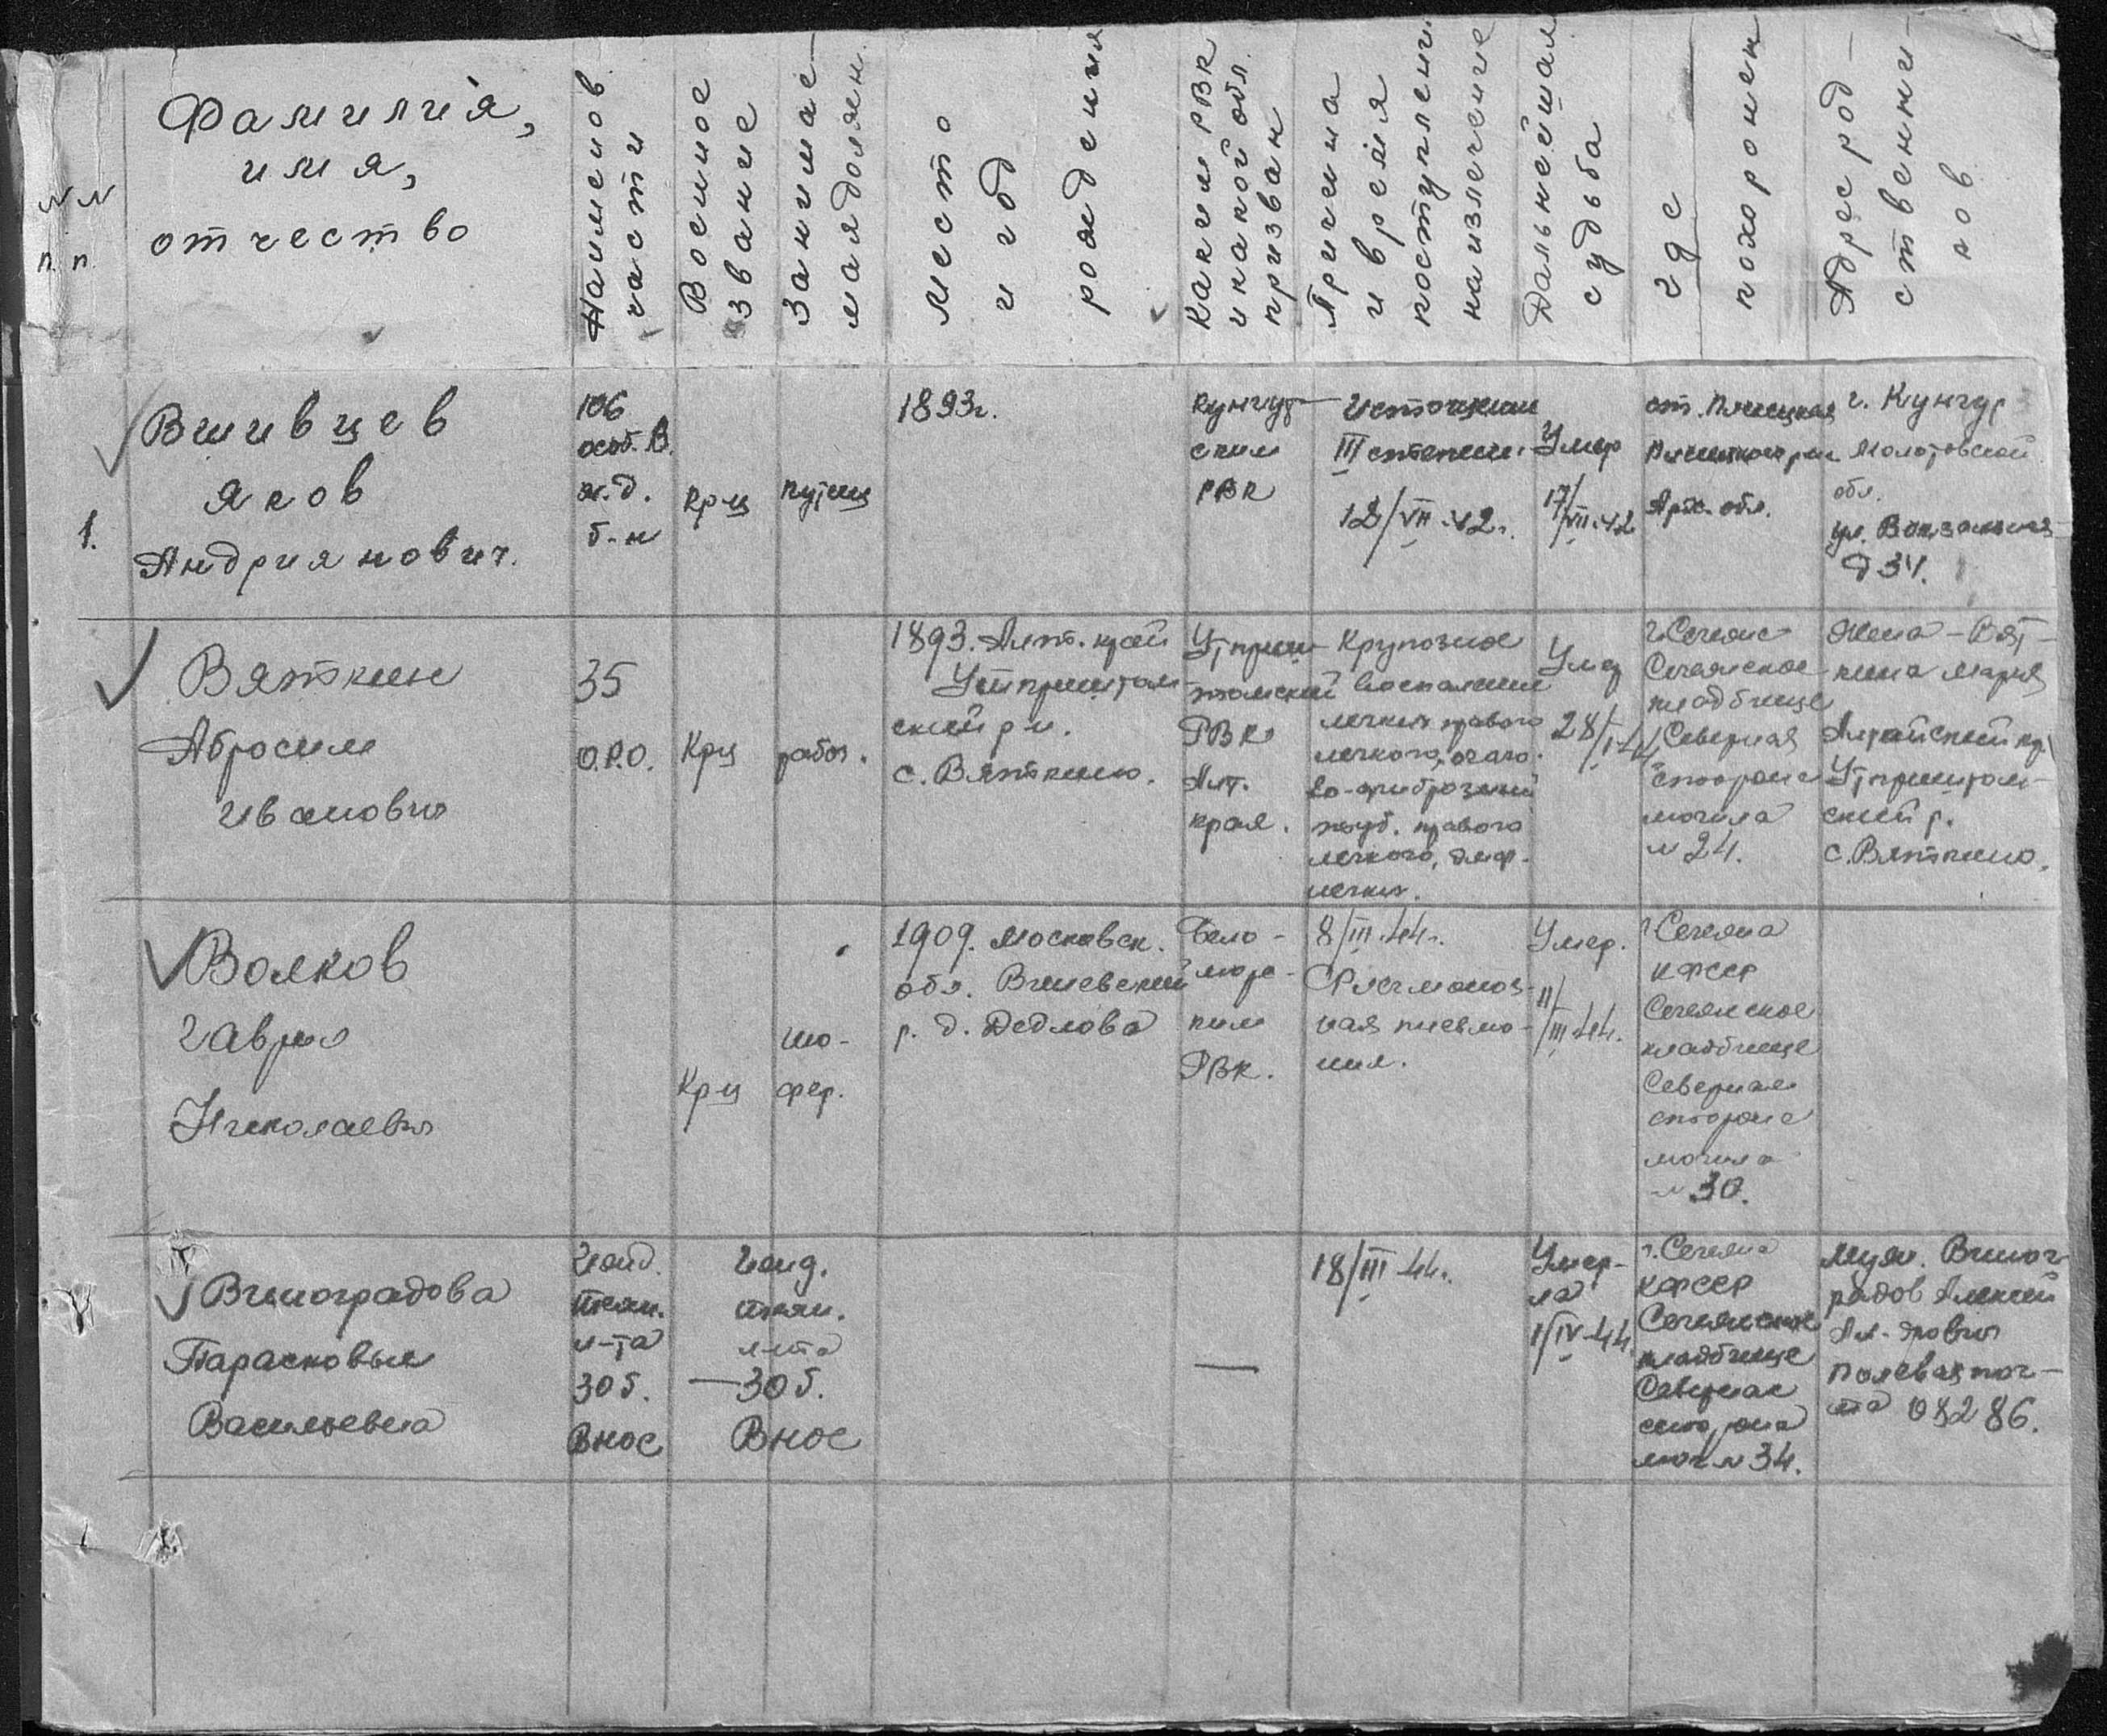 №№
п.п.
Фамилия,
имя,
отчество
Наименов.
части
Военное
звание
Занимае-
мая должн.
Место
и год
рождения
Каким РВК
и какой обл.
призван
Причина
и время
поступлени
на излечение
Дальнейшая
судьба
где
похоронен
Адрес род-
ственни-
ков
1.
Вшивцев
Яков
Андриянович.
106
особ. В.
ж.д.
б-н
Крц
путиец
1893г.
Кунгур-
ским
РВК
Истощение
III степени.
12/VII-42г.
Умер
17/VII-42
ст. Плесецкая
Плесецкого р-на
Арх. обл.
г. Кунгур
Молотовской
обл.
ул. Вокзальная
д 34.
Вяткин
Абросим
Иванович
35
О.Р.О.
Крц
рабоч.
1893. Алт. край
Устпристан
ский р-н.
с. Вяткино.
Устприс-
танский
РВК
Алт.
края.
Крупозное
воспаление
легких правого
легкого, очаго-
во-фиброзный
туб. правого
легкого, эмф.
легких.
Умер
28/I-44
г. Сегежа
Сегежское
кладбище
Северная
сторона
могила
№ 24.
Жена - Вят-
кина Мария
Алтайский кр.
Устпристан-
ский р.
с. Вяткино.
Волков
Гаврил
Николаевич
Крц
шо-
фер.
1909. Московск.
обл. Вышевский
р. д. Дедлово
Бело-
морс-
ким
РВК.
8/III-44г.
Флегмоноз-
ная пневмо-
ния.
Умер.
11/III-44г.
г. Сегежа
КФССР
Сегежское
кладбище
Северная
сторона
могила
№ 30.
Виноградова
Парасковья
Васильевна
Канд.
ткан.
л-та
305.
ВНОС
канд.
ткан.
л-та
—305.
ВНОС
—
18/III-44г.
Умер-
ла
1/IV-44
г. Сегежа
КФССР
Сегежское
кладбище
Северная
сторона
мог № 34.
Муж. Виног
радов Алексей
Ал-дрович
Полевая поч-
та 08286.